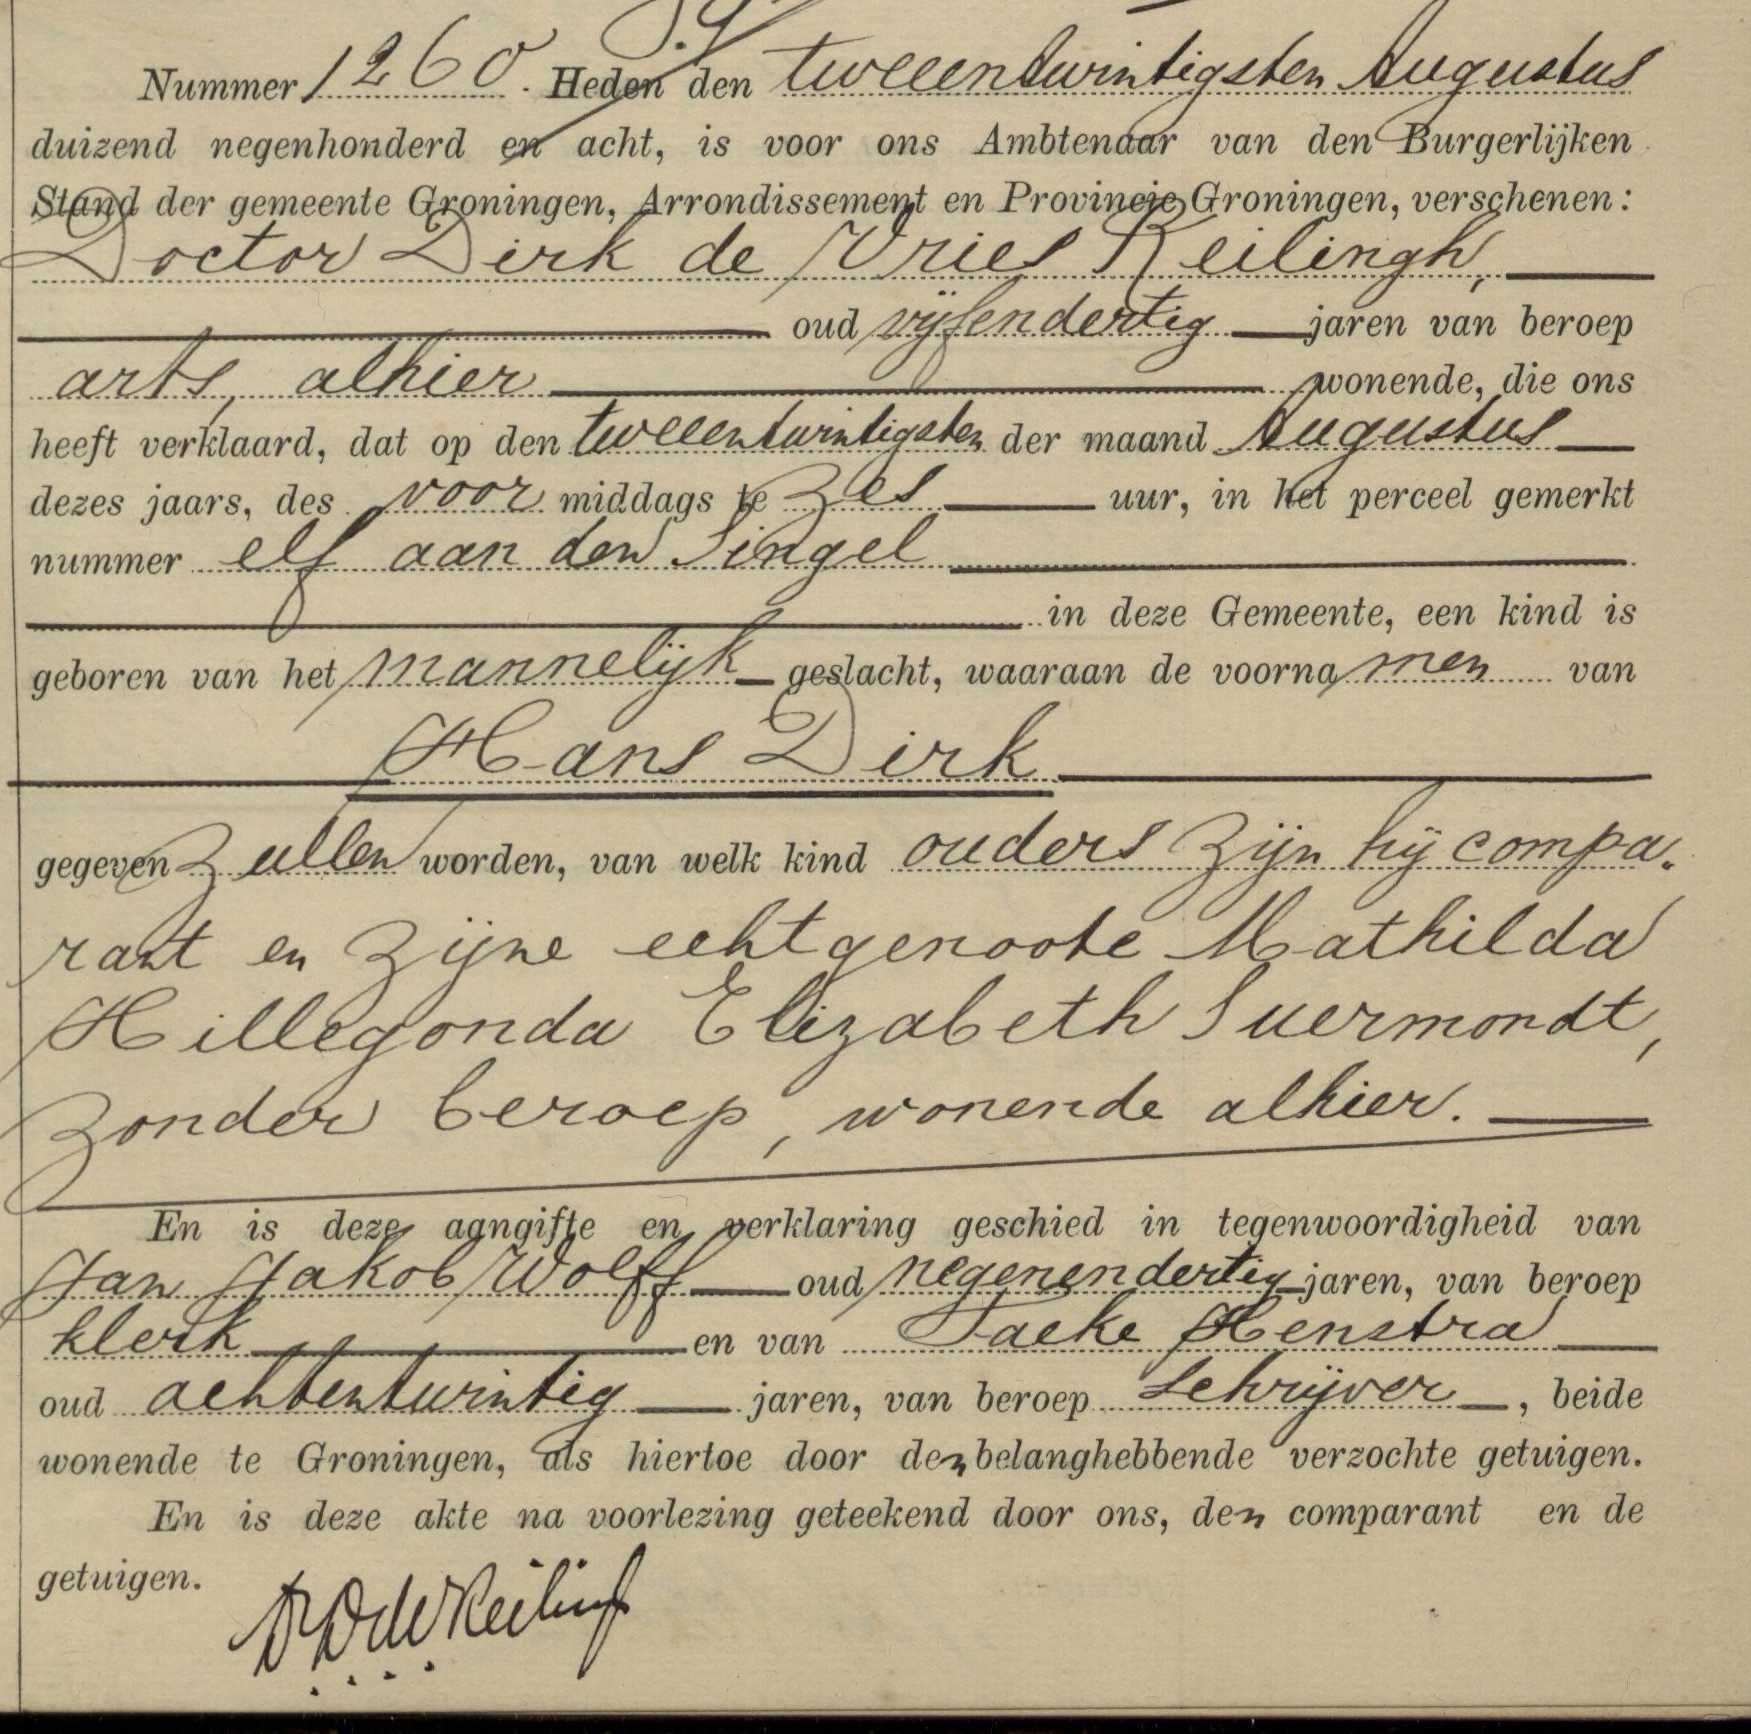 Nummer 1260. Heden den tweeentwintigsten Augustus
duizend negenhonderd en acht, is voor ons Ambtenaar van den Burgerlijken
Stand der gemeente Groningen, Arrondissement en Provincie Groningen, verschenen:
Doctor Dirk de Vries Reilingh,
oud vijfendertig jaren van beroep
arts, alhier wonende, die ons
heeft verklaard, dat op den tweeentwintigsten der maand Augustus
dezes jaars, des voor middags te zes uur, in het perceel gemerkt
nummer elf aan den Singel
in deze Gemeente, een kind is
geboren van het mannelijk geslacht, waaraan de voornamen van
Hans Dirk
gegeven zullen worden, van welk kind ouders zijn hij compa-
rant en zijne echtgenoote Mathilda
Hillegonda Elizabeth Suermondt,
zonder beroep, wonende alhier.
En is deze aangifte en verklaring geschied in tegenwoordigheid van
Jan Jakob Wolff oud negenendertig jaren, van beroep
klerk en van Taeke Henstra
oud achtentwintig jaren, van beroep schrijver, beide
wonende te Groningen, als hiertoe door den belanghebbende verzochte getuigen.
En is deze akte na voorlezing geteekend door ons, den comparant en de
getuigen.
Dr D de V Reilingh